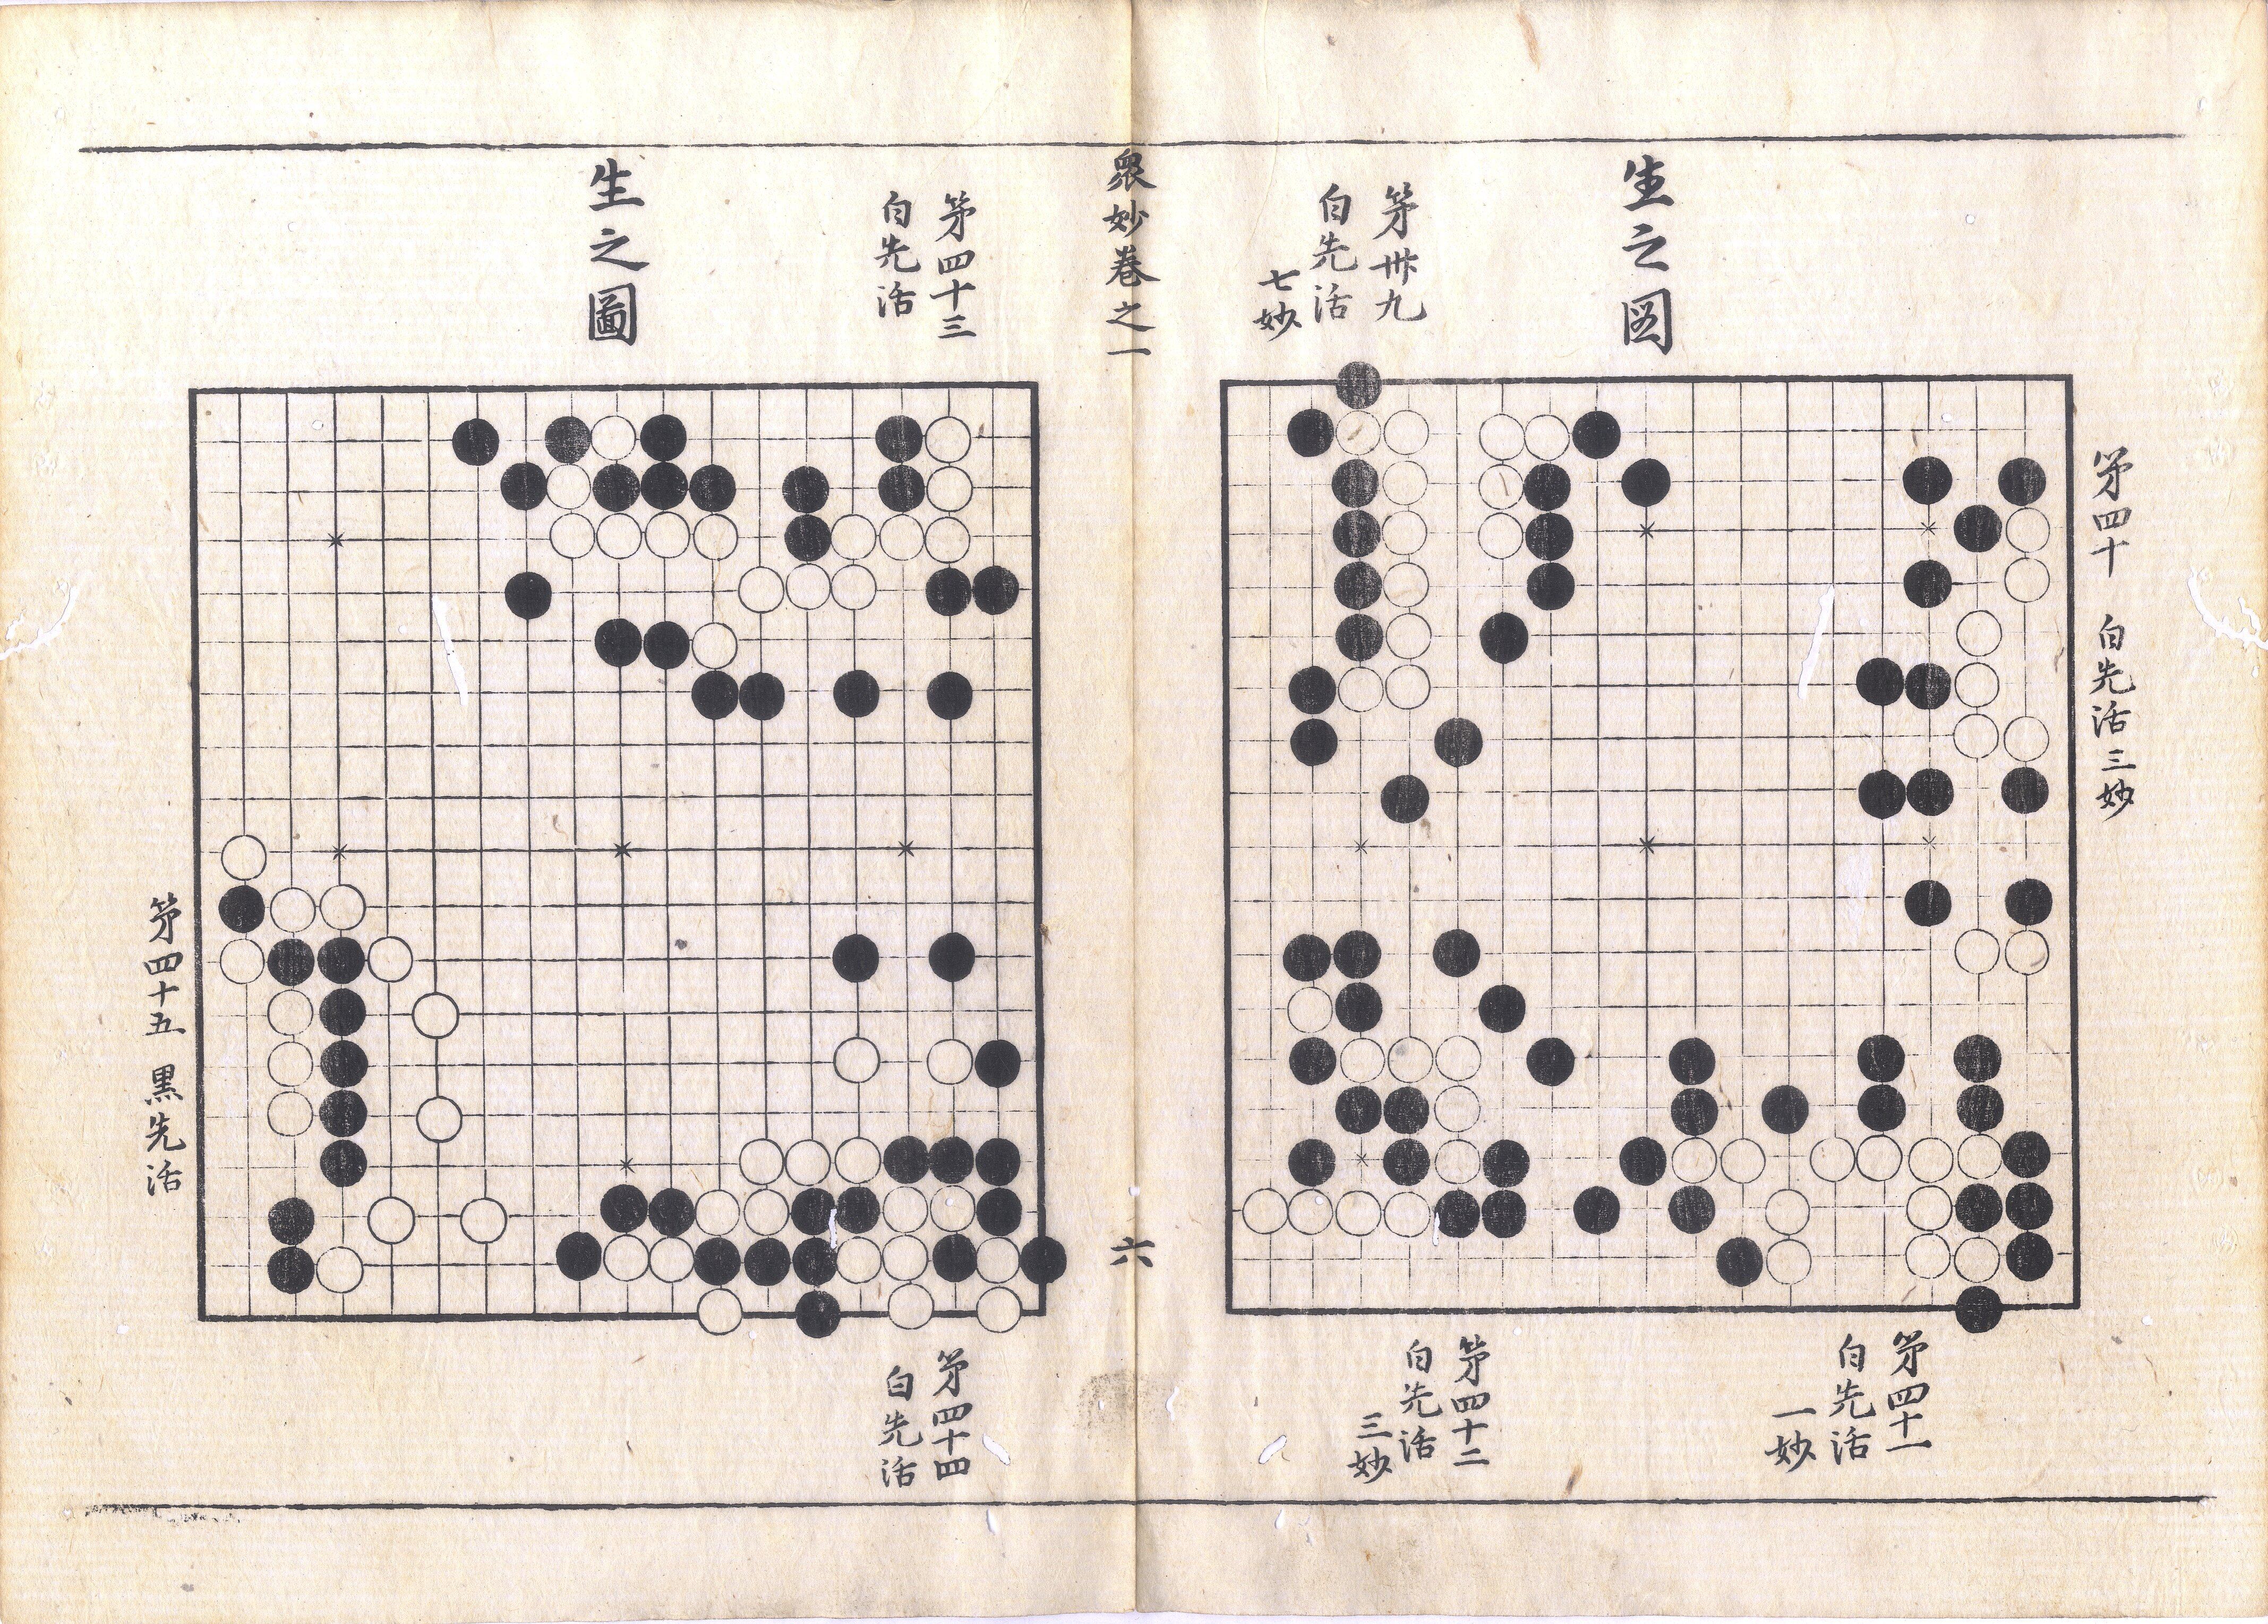 生之図
第卅九
白先活
七妙
第四十 白先活三妙
第四十一
白先活
一妙
第四十二
白先活
三妙
衆妙巻之一
六
生之圖
第四十三
白先活
第四十四
白先活
第四十五 黒先活